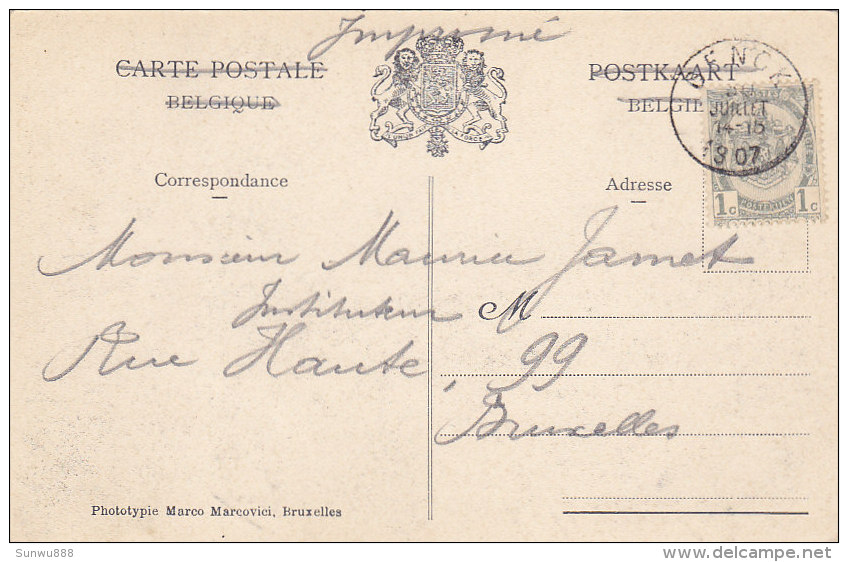 Imprimé
CARTE POSTALE
BELGIQUE
POSTKAART
BELGIE
GENCK
JUILLET
14-15
1907
1c 1c
Correspondance
Adresse
Monsieur Maurice Jamet
Instituteur
M
Rue Haute, 99
Bruxelles
Phototypie Marco Marcovici, Bruxelles
Sunwu888
delcampe.net